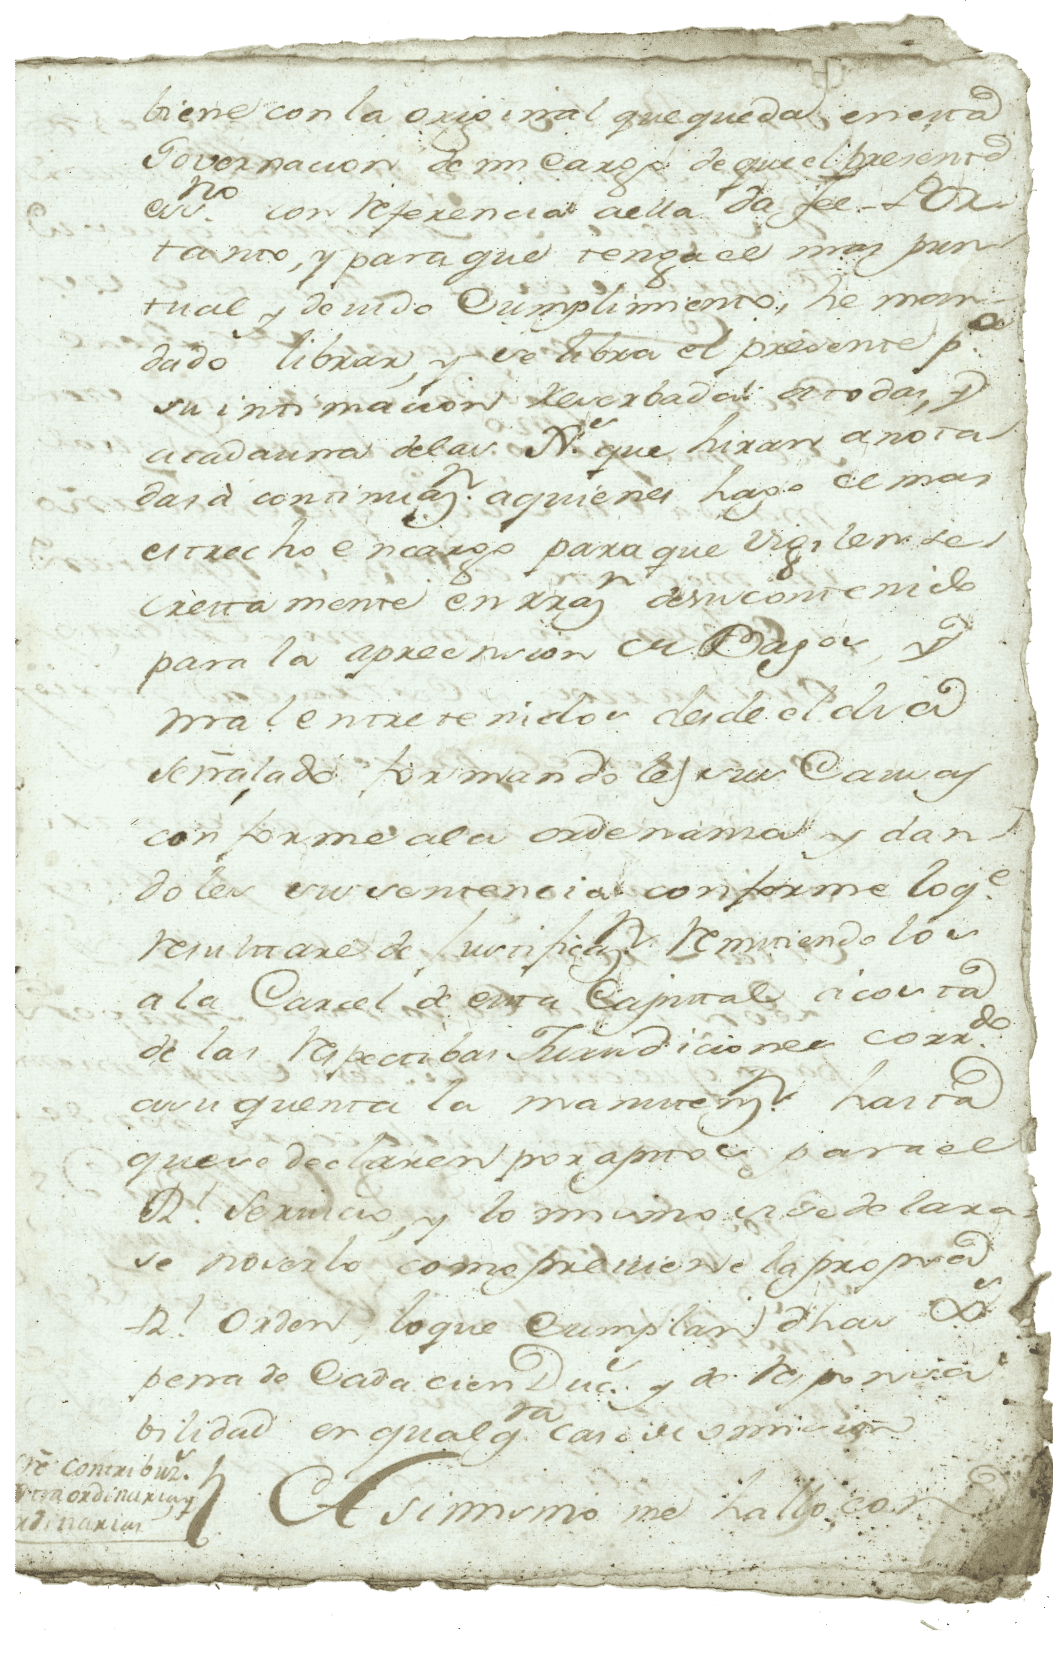 biene con la original que queda en esta
Governacion de mi Cargo de que el presente
essno. con referencia aella da fee - Por
tanto, y para que tenga el mas pun
tual y devido Cumplimiento, he man
dado librar, y se libra el presente pa.
su intimacion reserbada atodas, y
acadauna delas Js. que hiran anota
das à continuazn. aquienes hago el mas
estrecho encargo para que vigilen se
cretta mente en rrazn. desu contenido
para la aprecnsion de Bagos, y
mal entretenidos desde el dia
señalado formandoles sus Causas
con forme ala ordenanza y dan
doles su sentencia conforme lo qe.
resulttare de Justificazn. remitiendolos
a la Carcel de esta Capittal a costa
de las respectibas Jurisdiciones corrdo.
asu quenta la manutenzn. hasta
que se declaren por aptos para el
Rl. Servicio, y lo mismo si se delara
se noserlo como previene la propia
Rl. Orden, loque Cumplan dhas Js.
pena de Cada cien Ducs. y de responsa
bilidad en qualqra. caso de omision
sre. Contribuzs.
extraordinarias y
ordinarias
Asimismo me hallo con